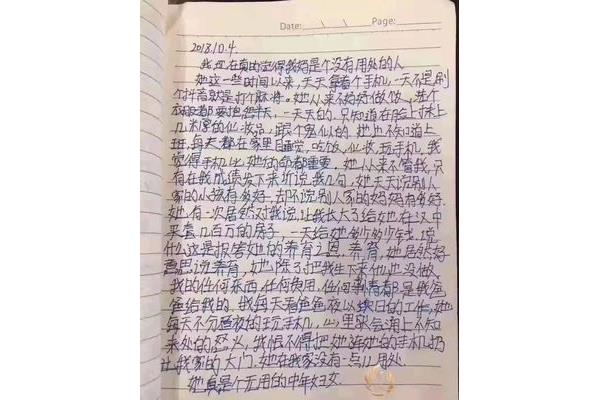 Date: \ \ Page:
2018.10.4.
我现在真的觉得我妈是个没有用处的人
她这一些时间以来,天天拿着个手机,一天不是刷
个抖音就是打个麻将。她从来不好好做饭,洗个
衣服都要抱怨半天,一天天的,只知道在脸上抹上
几米厚的化妆品,跟个鬼似的。她也不知道上
班,每天都在家里睡觉,吃饭,化妆,玩手机,我
觉得手机比她的命都重要,她从来不管我,只
有在我成绩发下来听说我几句,她天天说别人
家的小孩有多好,却不说别人家的妈妈有多好.
她有一次居然对我说,让我长大了给她在汉中
买套几百万的房子,一天给她多少多少钱,说
什么这是报答她的养育之恩,养育,她居然好
意思说养育,她除了把我生下来,她也没做
我的任何东西,任何费用,任何 都是我爸
爸给我的,我每天看爸爸夜以继日的工作,她
每天不分昼夜的玩手机,心里就会涌上不知
来处的怒火,我恨不得把她连她的手机扔
出我家的大门,她在我家没有一点儿用处.
她真是个无用的中年妇女.